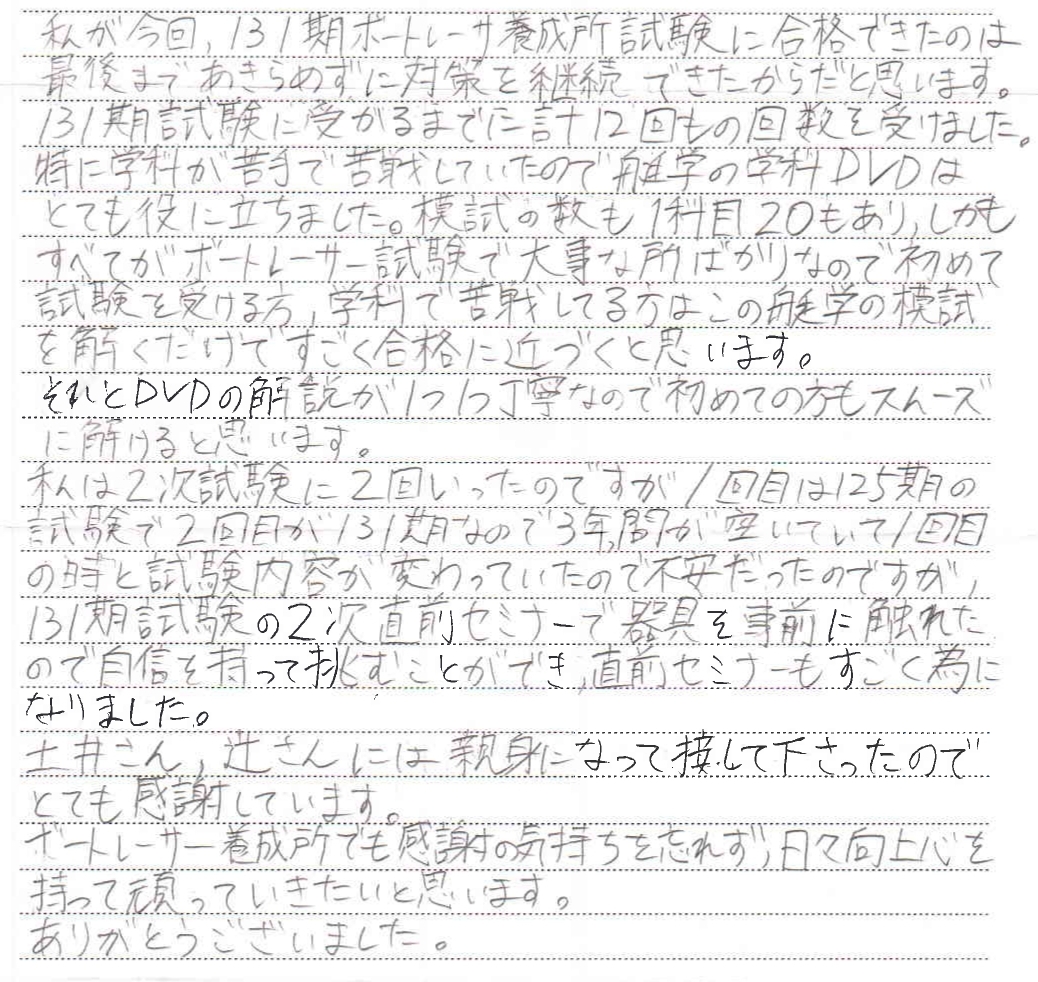 私が今回,131期ボートレーサ養成所試験に合格できたのは
最後まであきらめずに対策を継続できたからだと思います。
131期試験に受かるまでに計12回もの回数を受けました。
特に学科が苦手で苦戦していたので艇学の学科DVDは
とても役に立ちました。模試の数も1科目20もあり,しかも
すべてがボートレーサー試験で大事な所ばかりなので初めて
試験を受ける方,学科で苦戦してる方はこの艇学の模試
を解くだけですごく合格に近づくと思います。
それとDVDの解説が1つ1つ丁寧なので初めての方もスムーズ
に解けると思います。
私は2次試験に2回いったのですが1回目は125期の
試験で2回目が131期なので3年間が空いていて1回目
の時と試験内容が変わっていたので不安だったのですが,
131期試験の2次直前セミナーで器具を事前に触れた
ので自信を持って挑むことができ,直前セミナーもすごく為に
なりました。
土井さん,辻さんには親身になって接して下さったので
とても感謝しています。
ボートレーサー養成所でも感謝の気持ちを忘れず,日々向上心を
持って頑っていきたいと思います。
ありがとうございました。